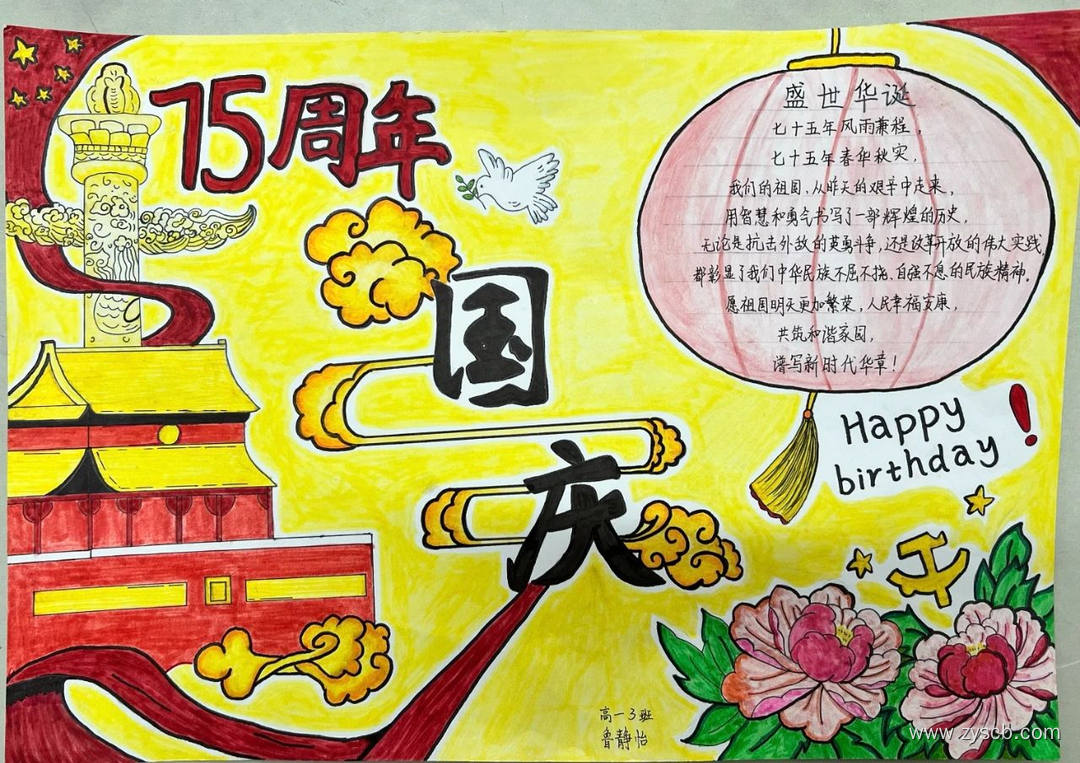 75周年
国
庆
盛世华诞
七十五年风雨兼程，
七十五年春华秋实，
我们的祖国，从昨天的艰辛中走来，
用智慧和勇气书写了一部辉煌的历史，
无论是抗击外敌的英勇斗争，还是改革开放的伟大实践，
都彰显了我们中华民族不屈不挠、自强不息的民族精神。
愿祖国明天更加繁荣，人民幸福安康，
共筑和谐家园，
谱写新时代华章！
Happy
birthday!
高一3班
鲁静怡
www.zyscb.com